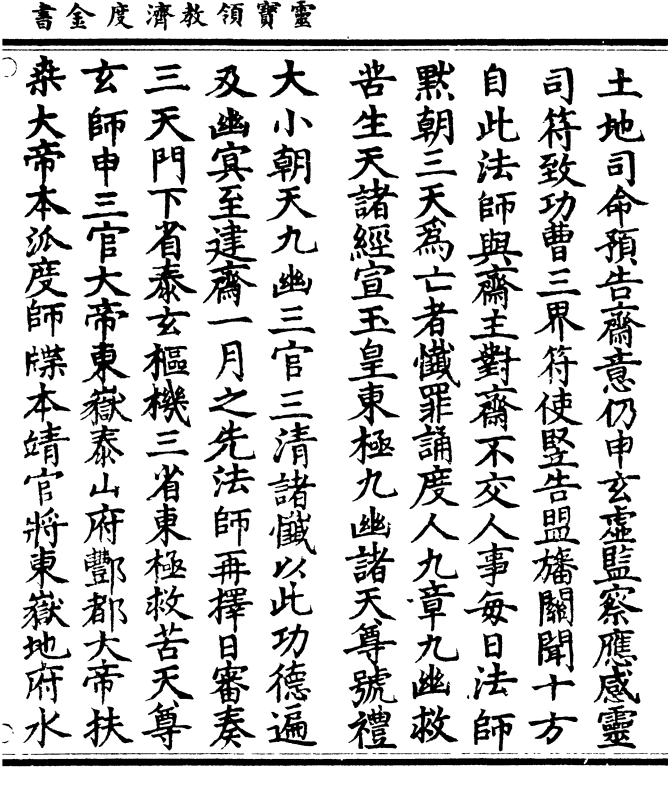 靈寶領教濟度金書
土地司命預告齋意仍申玄虛監察應感靈
司符致功曹三界符使竪告盟旛關聞十方
自此法師與齋主對齋不交人事每日法師
黙朝三天爲亡者懺罪誦度人九章九幽救
苦生天諸經宣玉皇東極九幽諸天尊號禮
大小朝天九幽三官三清諸懺以此功德遍
及幽㝠至建齋一月之先法師再擇日審奏
三天門下省泰玄樞機三省東極救苦天尊
玄師申三官大帝東嶽泰山府酆都大帝扶
桒大帝本泒度師牒本靖官將東嶽地府水